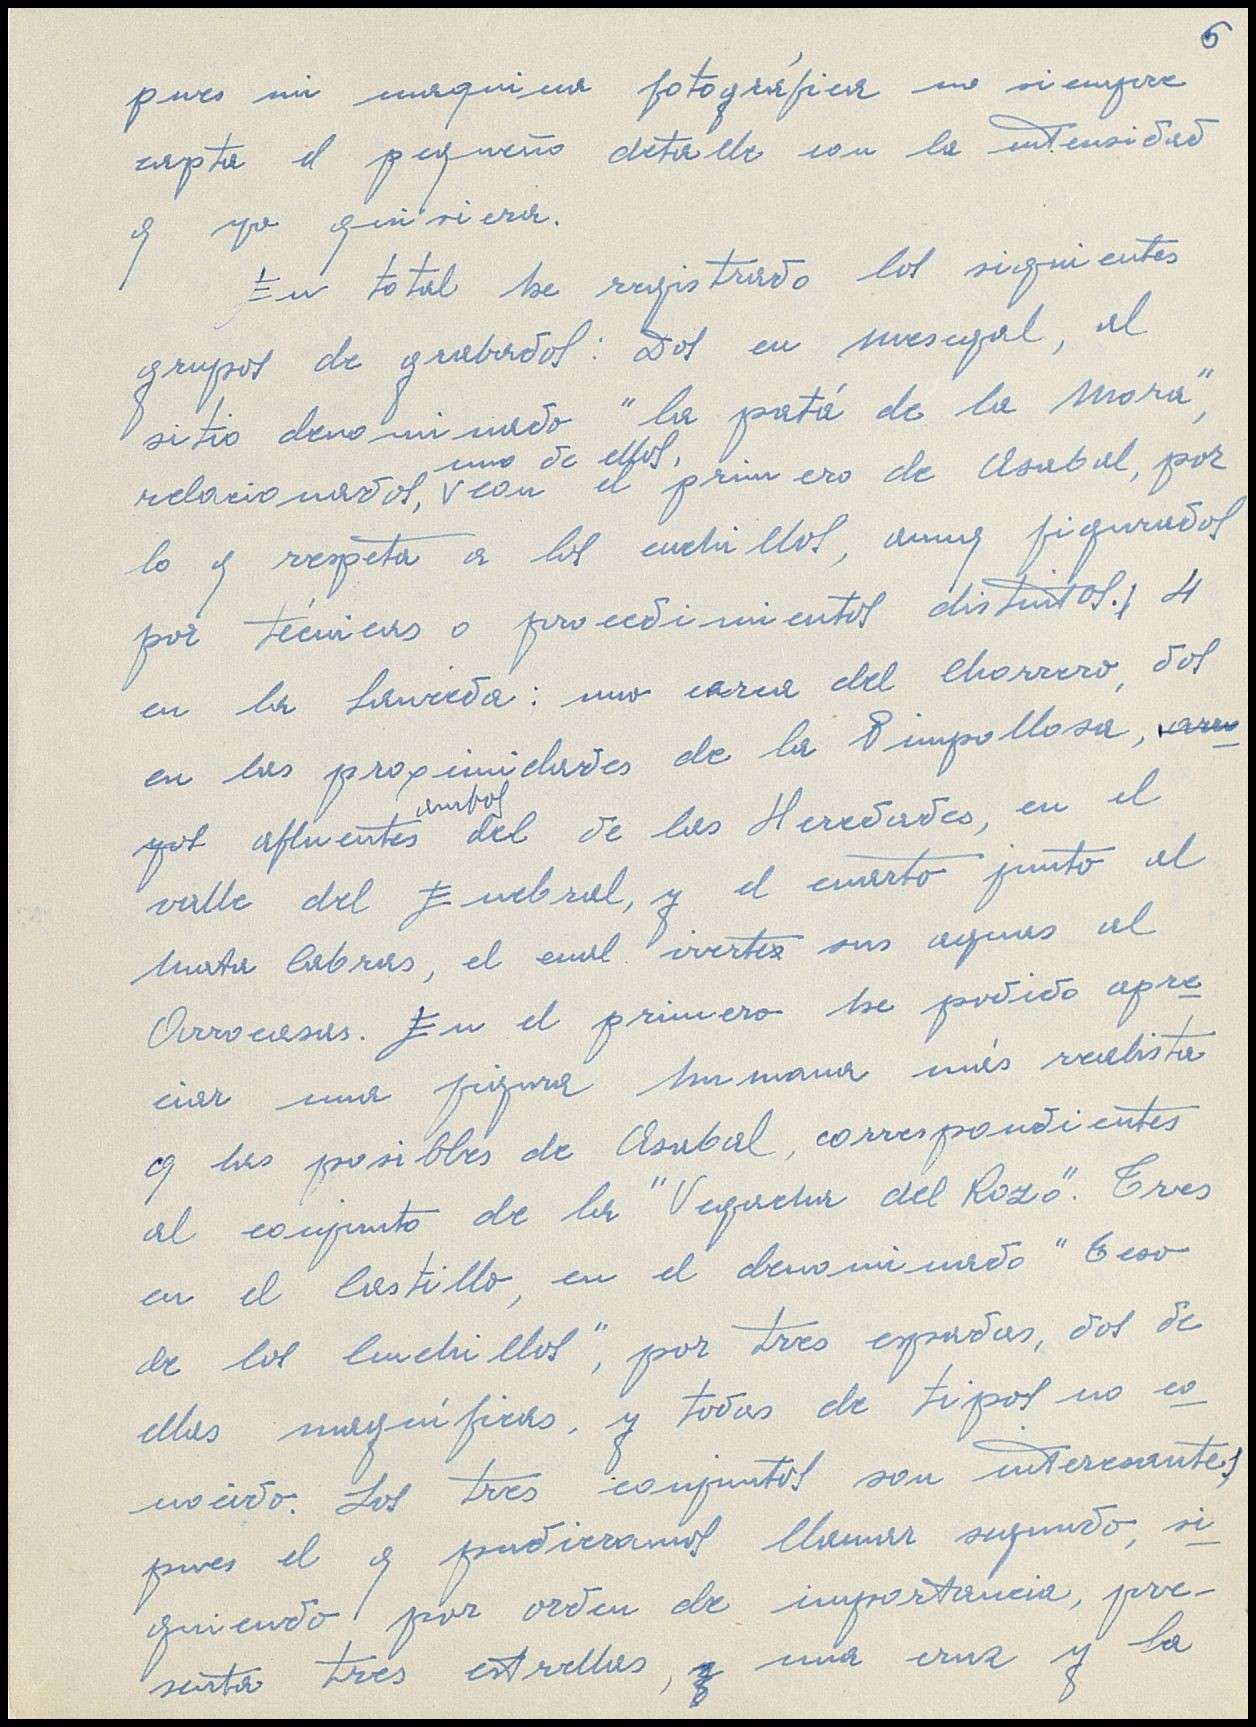 6
pues mi maquina fotográfica no siempre
capta el pequeño detalle con la intensidad
q yo quisiera.
En total he registrado los siguientes
grupos de grabados: Dos en Mesegal, al
sitio denominado "la patá de la Mora",
uno de ellos,
relacionados, con el primero de Asabal, por
lo q respeta a los cuchillos, aunq figurados
por técnicas o procedimientos distintos.; 4
en la Sauceda: uno cerca del Chorrero, dos
en las proximidades de la Pimpollosa, arro
yos afluentes ambos del de las Heredades, en el
valle del Enebral, y el cuarto junto al
Mata Cabras, el cual vierte sus aguas al
Arrocasas. En el primero he podido apre
ciar una figura humana más realista
q las posibles de Asabal, correspondientes
al conjunto de la "Vegacha del Rozo". Tres
en el Castillo, en el denominado "Teso
de los Cuchillos", por tres espadas, dos de
ellas magníficas, y todas de tipos no co
nocido. Los tres conjuntos son interesantes,
pues el q pudieramos llamar segundo, si
guiendo por orden de importancia, pre-
senta tres estrellas, y una cruz y la